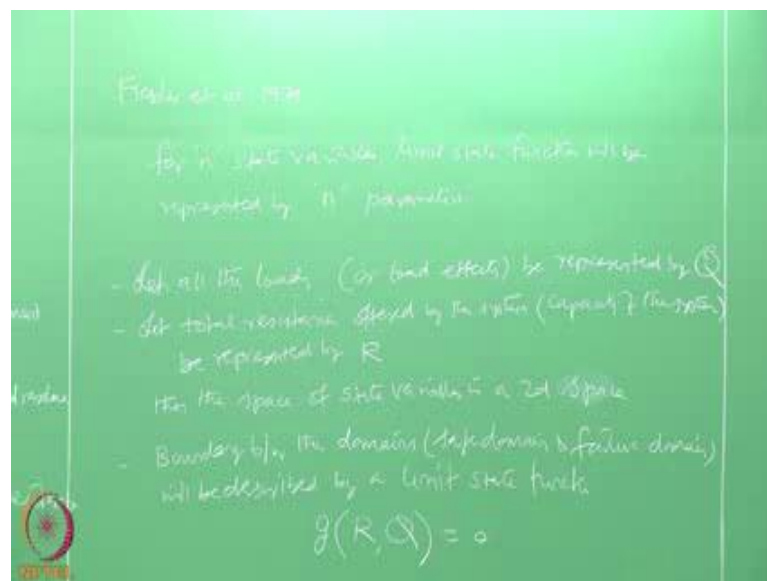 et al
for 'n' state variables limit state function will be
represented by 'n' parameters
- Let all the loads (or load effects) be represented by Q
- Let total resistance offered by the system (capacity of the system)
be represented by R
then the space of state variables is a 2d space
- Boundary b/w the domains (safe domain & failure domain)
will be described by a limit state
g(R, Q) = 0